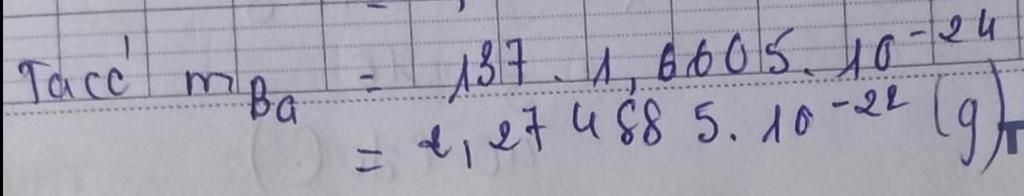 Tacć m_Ba = 137 . 1,6605. 10^-24
= 2,274885. 10^-22 (g)